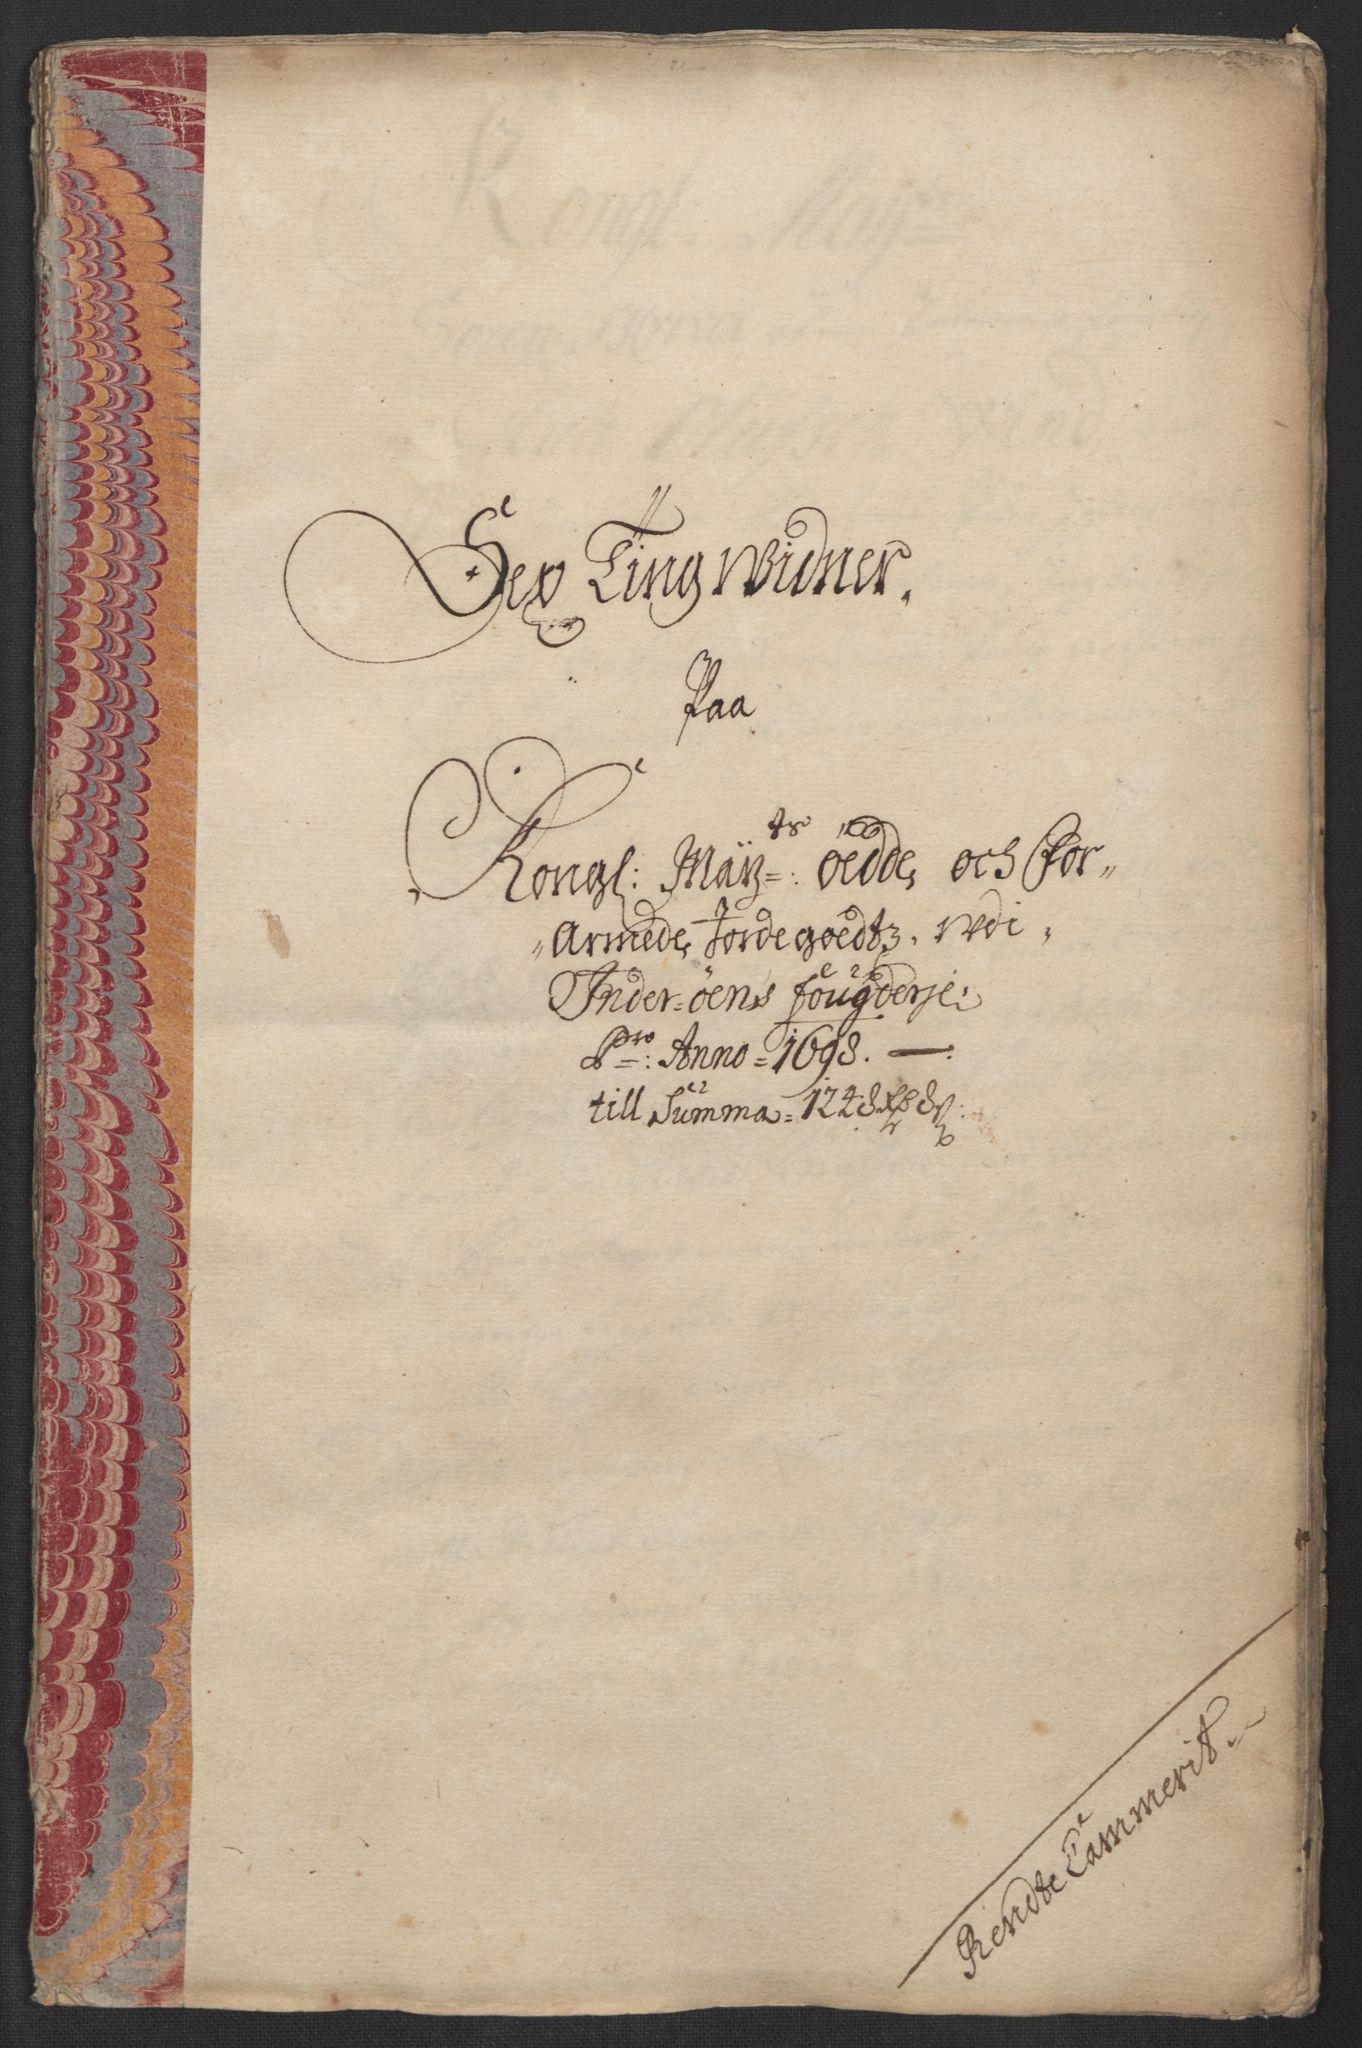 Sex Ting widner.
Paa
Kongl: Maÿ=: ts öedde, och For„
„Armede, Jordegoedtz, udi
Inder=öens fougderje:
Pro: Anno = 1698. —.
till Summa = 1248
Rendte Cammerit.